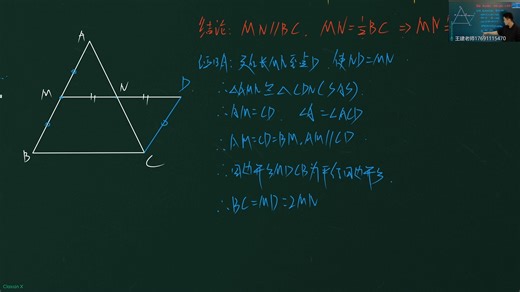 结论: MN//BC. MN=½BC ⇒ MN=
证明: 延长MN至点D, 使ND=MN
∴△AMN≌△CDN(SAS).
∴AM=CD. ∠A=∠ACD
∴AM=CD=BM, AM//CD.
∴四边形MDCB为平行四边形.
∴BC=MD=2MN
A
M
N
D
B
C
王建老师17691115470